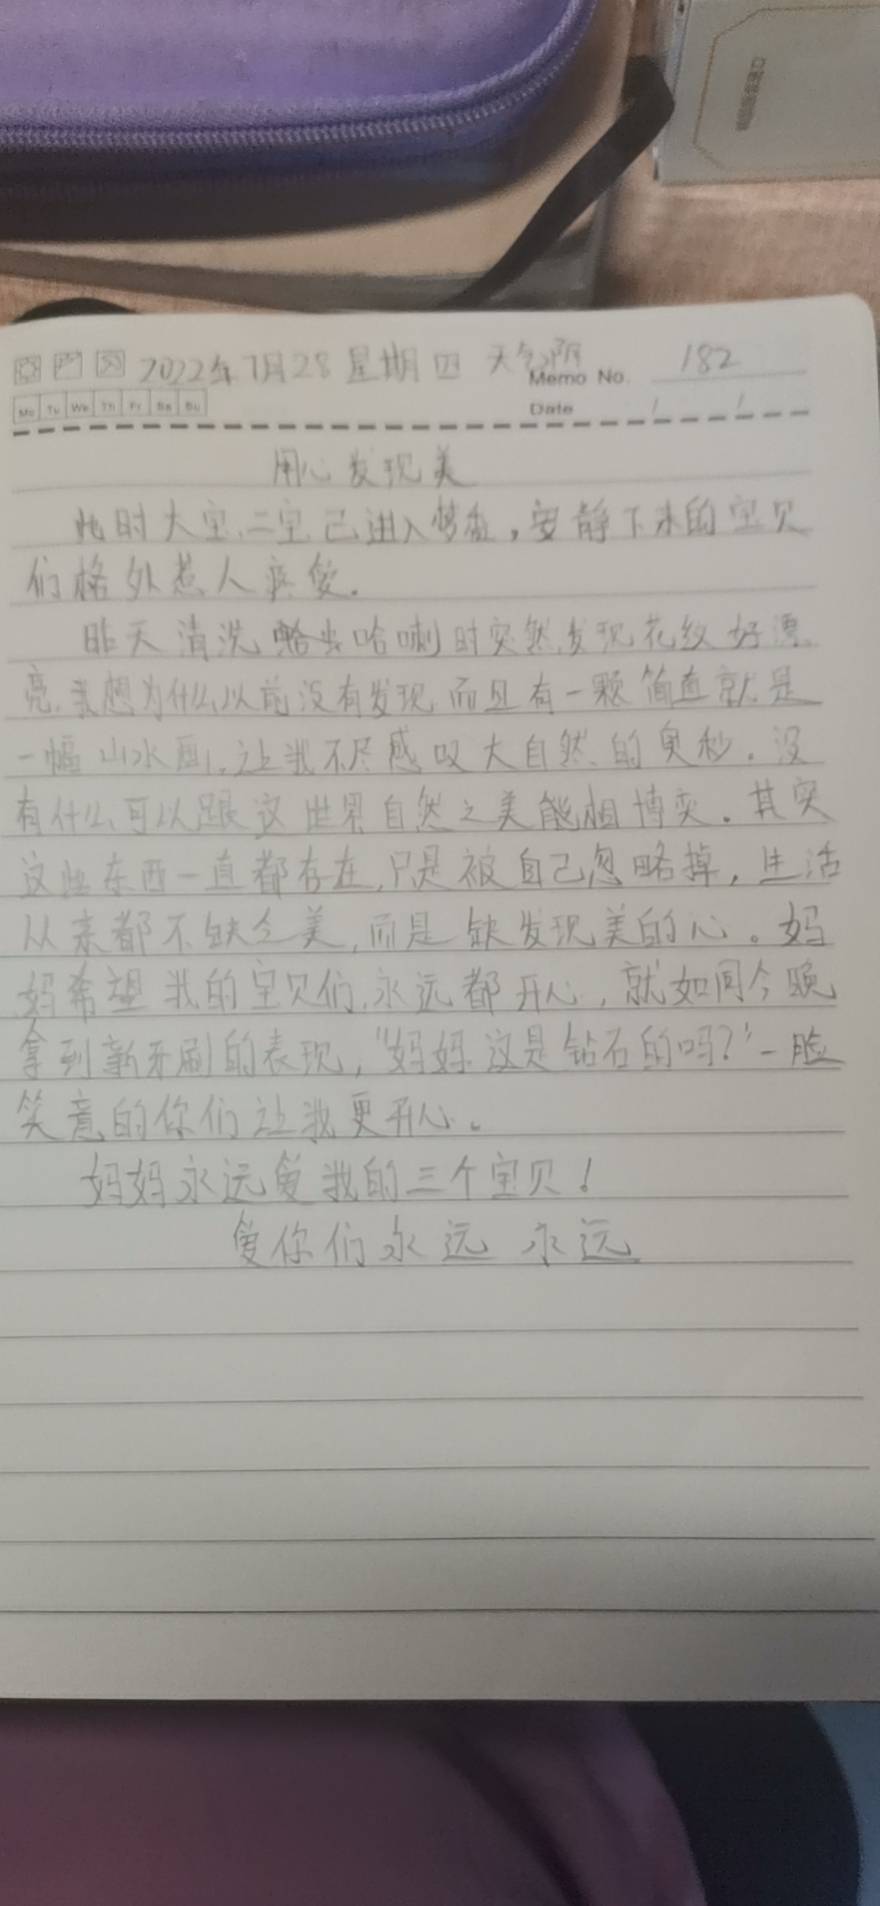 2022年7月28 星期四 天气阴
Memo No. 182
Mo Tu We Th Fr Sa Su
Date / /
用心发现美
此时大宝、二宝已进入梦乡，安静下来的宝贝
们格外惹人疼爱。
昨天清洗蛤蜊时突然发现花纹好漂
亮，我想为什么以前没有发现，而且有一颗简直就是
一幅山水画，让我不尽感叹大自然的奥秒。没
有什么可以跟这世界自然之美能相博奕。其实
这些东西一直都存在，只是被自己忽略掉，生活
从来都不缺乏美，而是缺发现美的心。妈
妈希望我的宝贝们永远都开心，就如同今晚
拿到新牙刷的表现，"妈妈这是钻石的吗？"一脸
笑意的你们让我更开心。
妈妈永远爱我的三个宝贝！
爱你们永远 永远